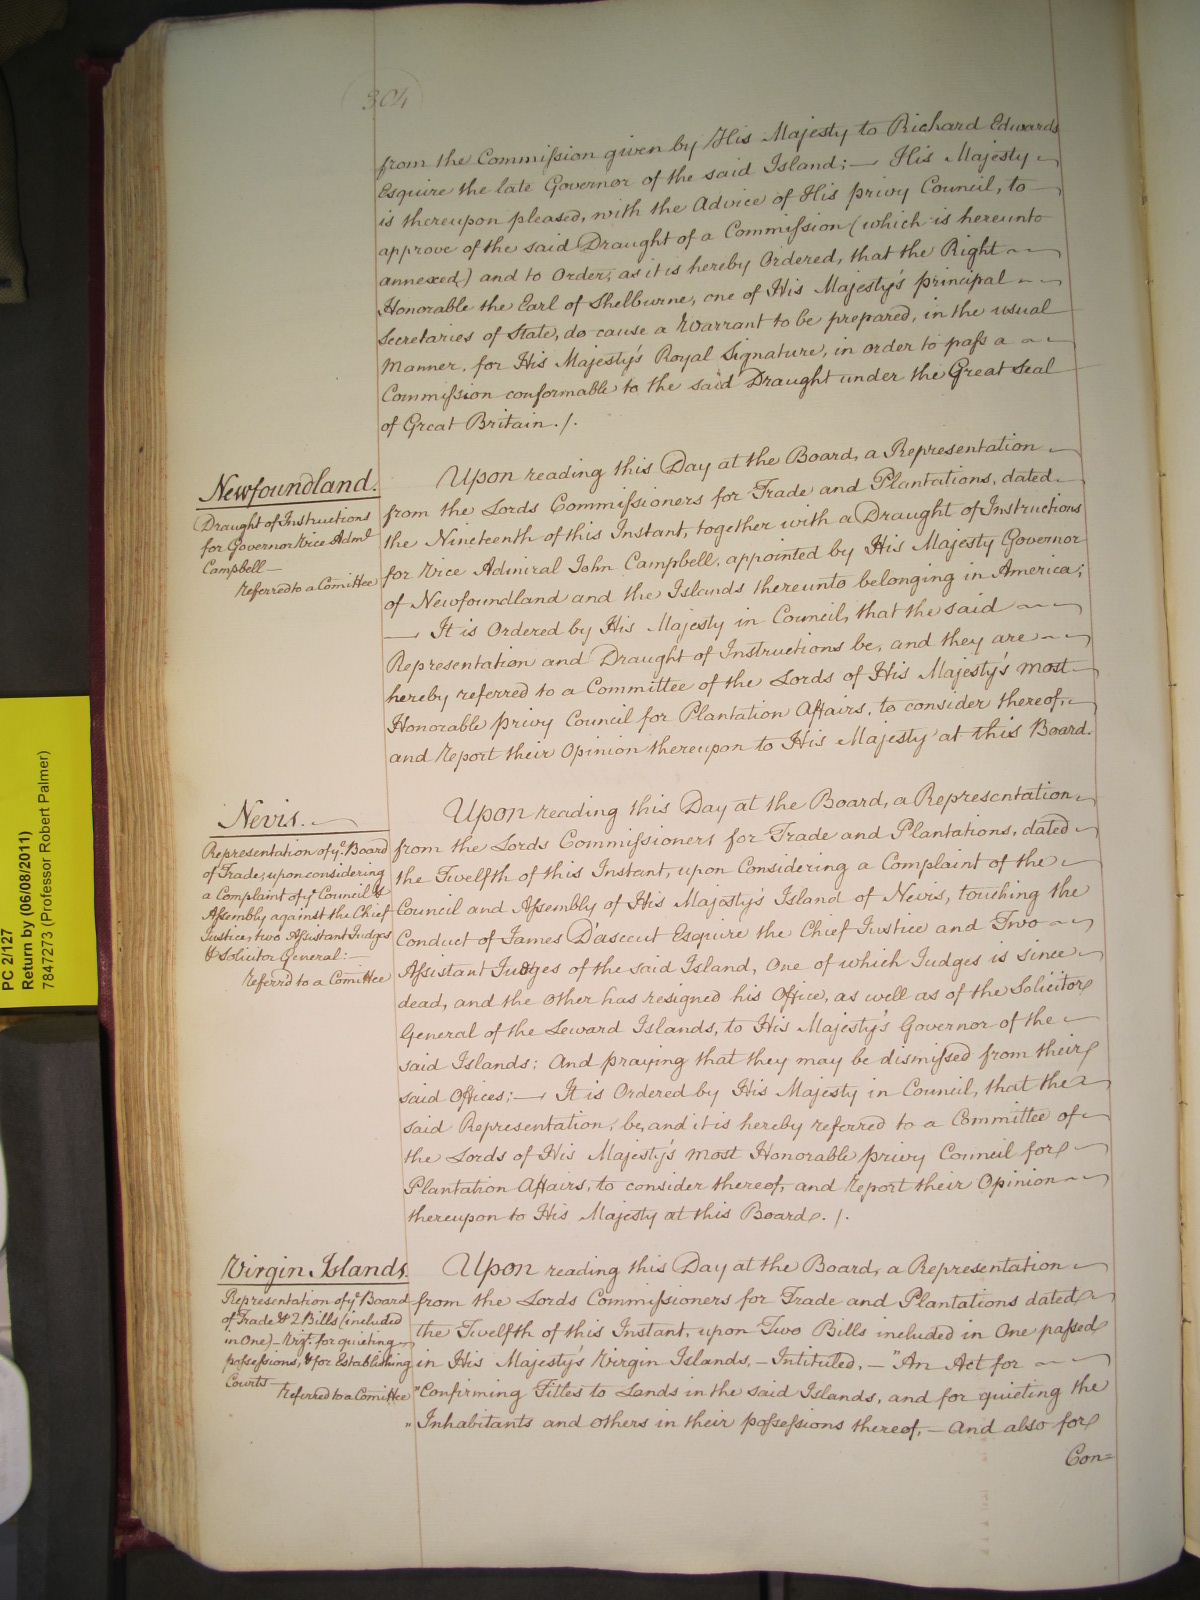 304
from the Commission given by His Majesty to Richard Edwards
Esquire the late Governor of the said Island; — His Majesty
is thereupon pleased, with the Advice of His privy Council, to
approve of the said Draught of a Commission (which is hereunto
annexed,) and to Order, as it is hereby Ordered, that the Right
Honorable the Earl of Shelburne, one of His Majesty's principal
Secretaries of State, do cause a Warrant to be prepared, in the usual
Manner, for His Majesty's Royal Signature, in order to pass a
Commission conformable to the said Draught under the Great Seal
of Great Britain. /.
Newfoundland.
Draught of Instructions
for Governor Vice Adml
Campbell —
Referred to a Comittee
Upon reading this Day at the Board, a Representation
from the Lords Commissioners for Trade and Plantations, dated
the Nineteenth of this Instant, together with a Draught of Instructions
for Vice Admiral John Campbell, appointed by His Majesty Governor
of Newfoundland and the Islands thereunto belonging in America;
— It is Ordered by His Majesty in Council, that the said
Representation and Draught of Instructions be, and they are
hereby referred to a Committee of the Lords of His Majesty's most
Honorable privy Council for Plantation Affairs, to consider thereof,
and Report their Opinion thereupon to His Majesty at this Board.
Nevis.
Representation of ye. Board
of Trade, upon considering
a Complaint of ye Council &
Assembly against the Chief
Justice, two Assistant Judges
& Solicitor General: —
Referr'd to a Comittee
Upon reading this Day at the Board, a Representation
from the Lords Commissioners for Trade and Plantations, dated
the Twelfth of this Instant, upon Considering a Complaint of the
Council and Assembly of His Majesty's Island of Nevis, touching the
Conduct of James D'ascent Esquire the Chief Justice and Two
Assistant Judges of the said Island, One of which Judges is since
dead, and the other has resigned his Office, as well as of the Solicitor
General of the Leward Islands, to His Majesty's Governor of the
said Islands; And praying that they may be dismissed from their
said Offices; — It is Ordered by His Majesty in Council, that the
said Representation, be, and it is hereby referred to a Committee of
the Lords of His Majesty's most Honorable privy Council for
Plantation Affairs, to consider thereof, and Report their Opinion
thereupon to His Majesty at this Board. /.
Virgin Islands.
Representation of ye Board
of Trade & 2 Bills (included
in One) — Vizt. for quieting
possessions, & for Establishing
Courts —
Referred to a Comittee
Upon reading this Day at the Board, a Representation
from the Lords Commissioners for Trade and Plantations dated
the Twelfth of this Instant, upon Two Bills included in One passed
in His Majesty's Virgin Islands, — Intituled, — "An Act for
"Confirming Titles to Lands in the said Islands, and for quieting the
"Inhabitants and others in their possessions thereof, — And also for
Con=
PC 2/127
Return by (06/08/2011)
7847273 (Professor Robert Palmer)